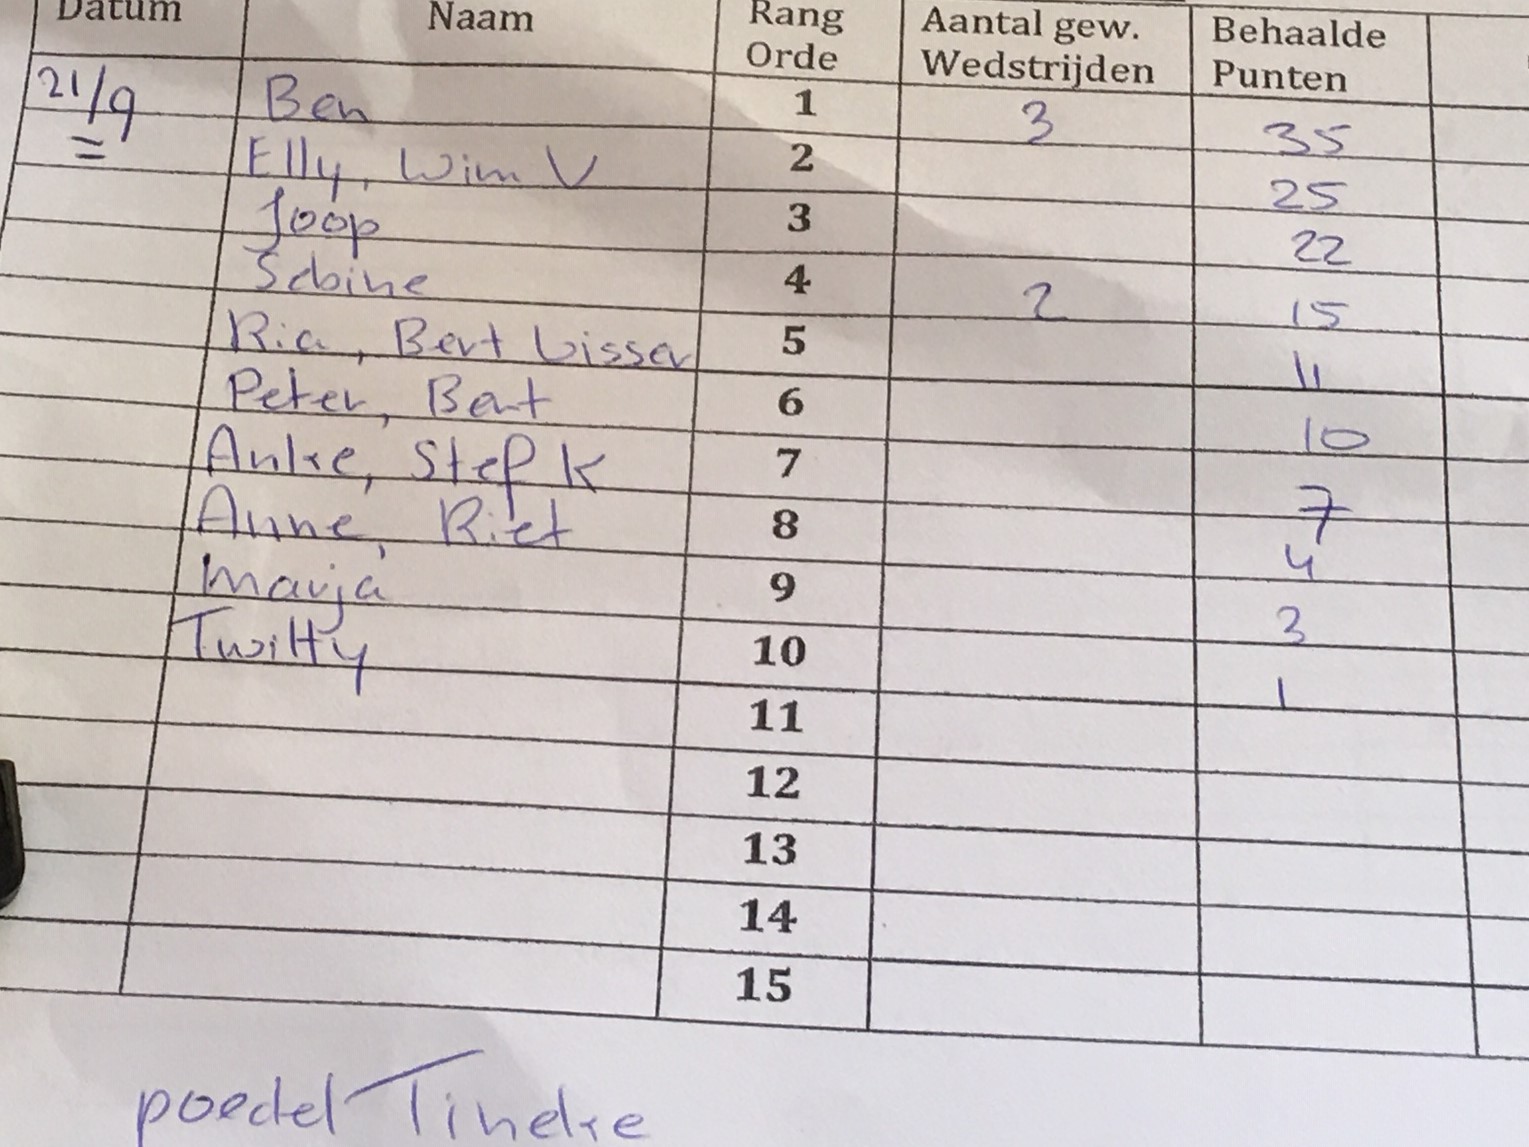 Datum Naam Rang Orde Aantal gew. Wedstrijden Behaalde Punten
21/9 Ben 1 3 35
= Elly, Wim V 2 25
Joop 3 22
Sabine 4 2 15
Ria, Bert Visser 5 11
Peter, Bert 6 10
Anke, Stef K 7 7
Anne, Riet 8 4
Marja 9 3
Twitty 10 1
11
12
13
14
15
poedel Tineke